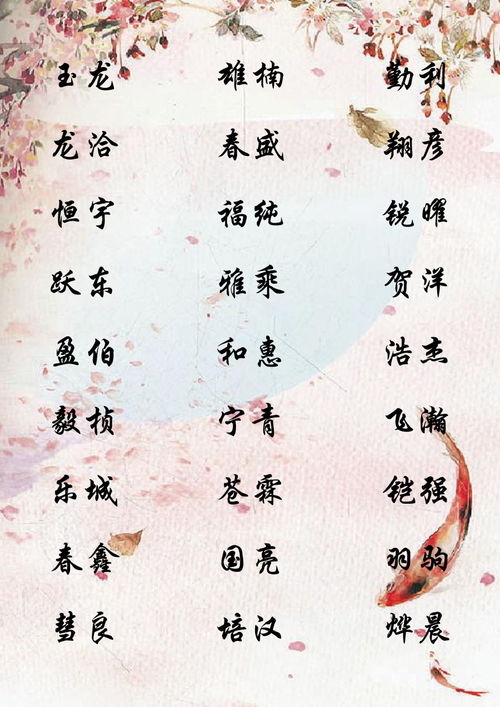 玉龙 雄楠 勤利
龙洽 春盛 翔彦
恒宇 福纯 锐曜
跃东 雅乘 贺洋
盈伯 和惠 浩杰
毅桢 宁青 飞瀚
乐城 苍霖 铠强
春鑫 国亮 羽驹
彗良 培汉 烨晨